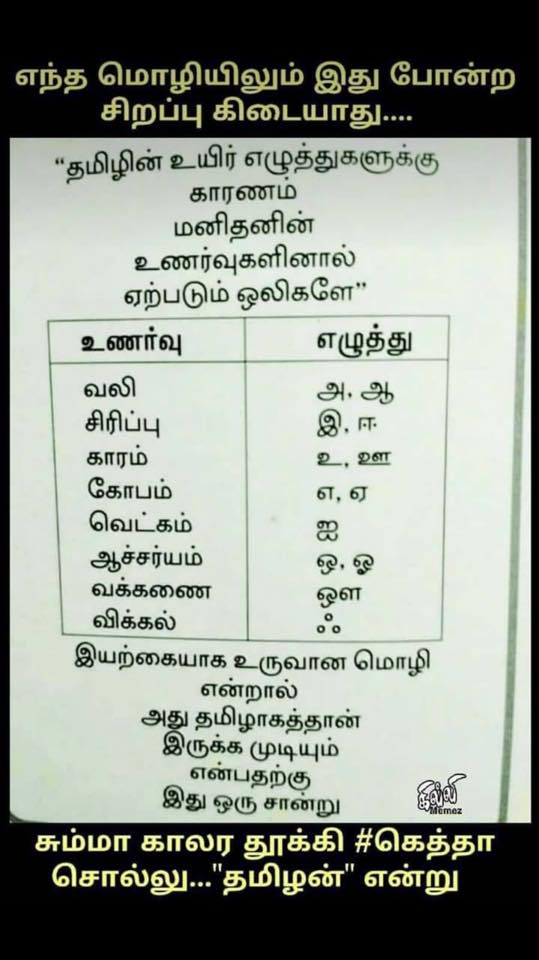 எந்த மொழியிலும் இது போன்ற
சிறப்பு கிடையாது....
“தமிழின் உயிர் எழுத்துகளுக்கு
காரணம்
மனிதனின்
உணர்வுகளினால்
ஏற்படும் ஒலிகளே”
உணர்வு எழுத்து
வலி அ, ஆ
சிரிப்பு இ, ஈ
காரம் உ, ஊ
கோபம் எ, ஏ
வெட்கம் ஐ
ஆச்சர்யம் ஒ, ஓ
வக்கணை ஔ
விக்கல் ஃ
இயற்கையாக உருவான மொழி
என்றால்
அது தமிழாகத்தான்
இருக்க முடியும்
என்பதற்கு
இது ஒரு சான்று
கில்லி
Memez
சும்மா காலர தூக்கி #கெத்தா
சொல்லு..."தமிழன்" என்று